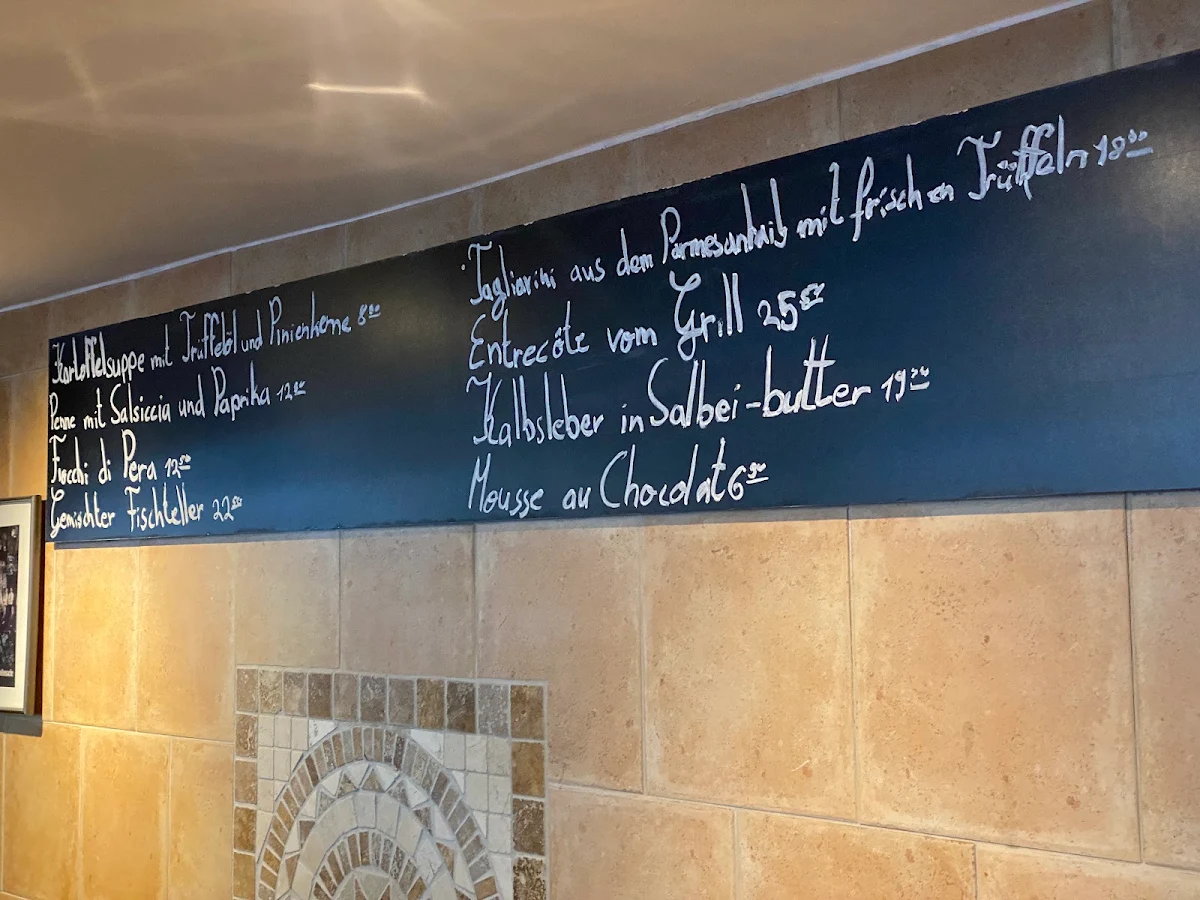 Kartoffelsuppe mit Trüffelöl und Pinienkerne 8⁵⁰
Penne mit Salsiccia und Paprika 12⁵⁰
Fiocchi di Pera 12⁵⁰
Gemischter Fischteller 22⁵⁰
Tagliarini aus dem Parmesanlaib mit frischen Trüffeln 18⁵⁰
Entrecôte vom Grill 25⁵⁰
Kalbsleber in Salbei-butter 19⁵⁰
Mousse au Chocolat 6⁵⁰